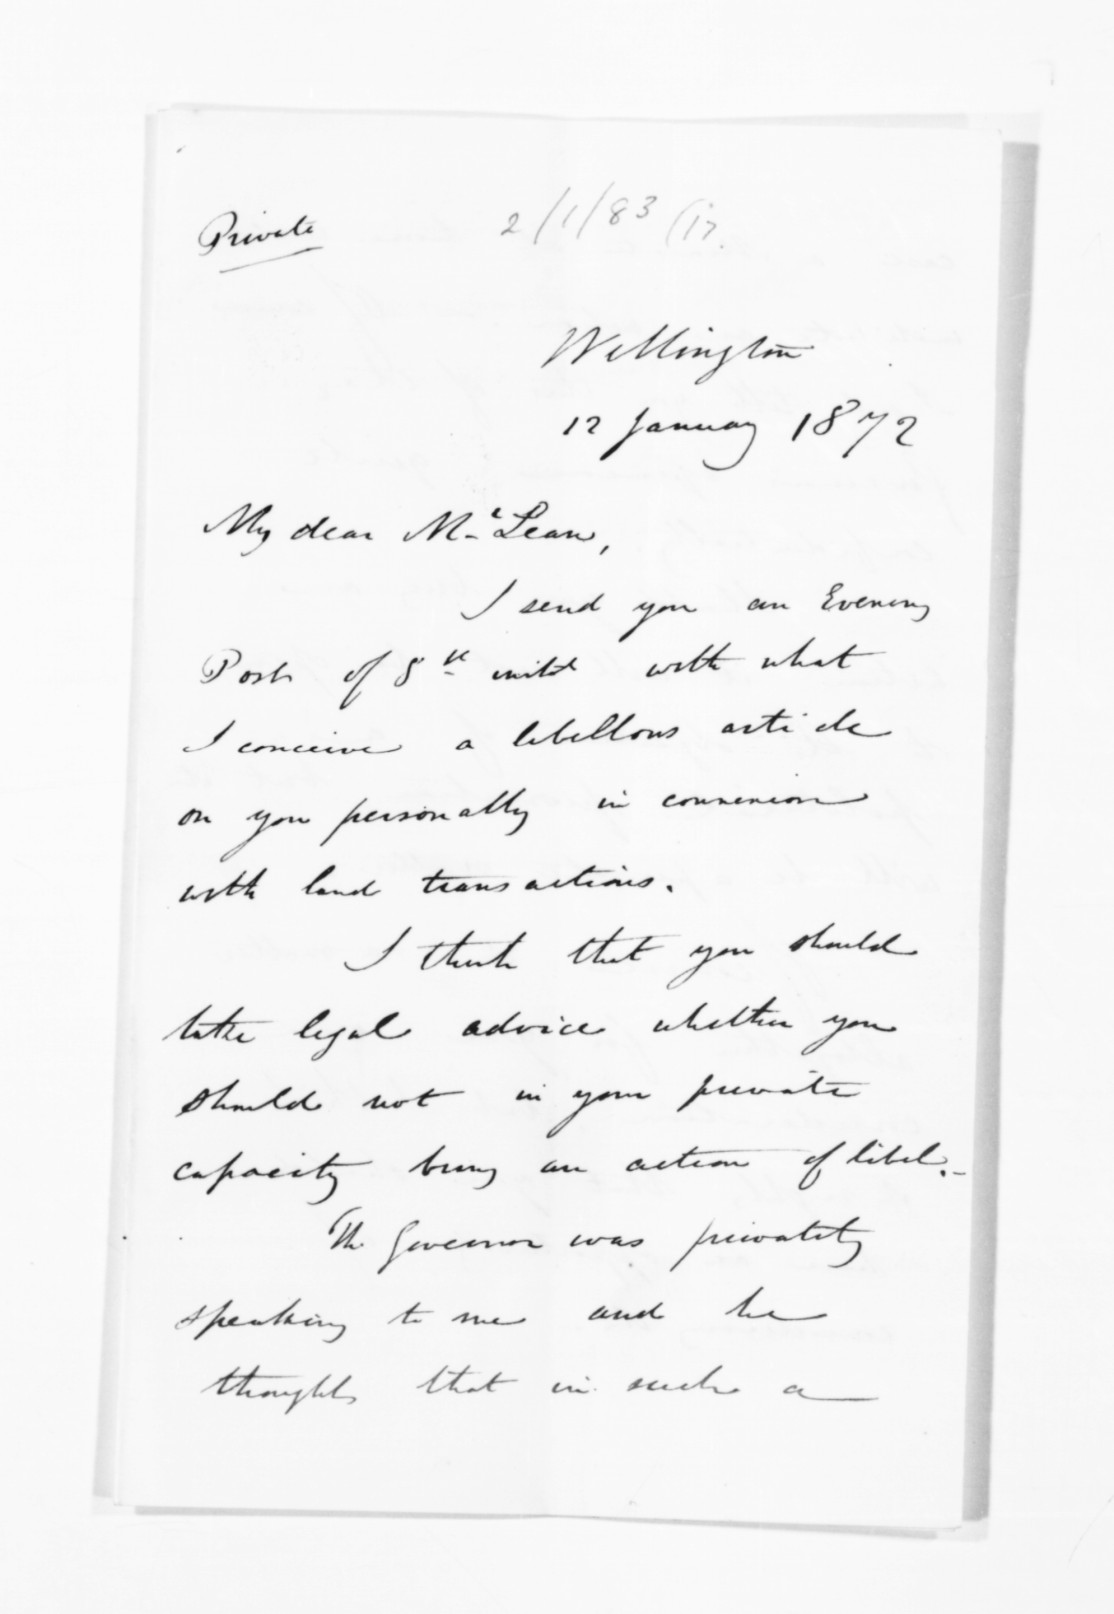 Private
2/1/83 (17.
Wellington
12 January 1872
My dear McLean,
I send you an Evening
Post of 8th inst with what
I conceive a libellous article
on you personally in connexion
with land transactions.
I think that you should
take legal advice whether you
should not in your private
capacity bring an action of libel.-
The Governor was privately
speaking to me and he
thought that in such a